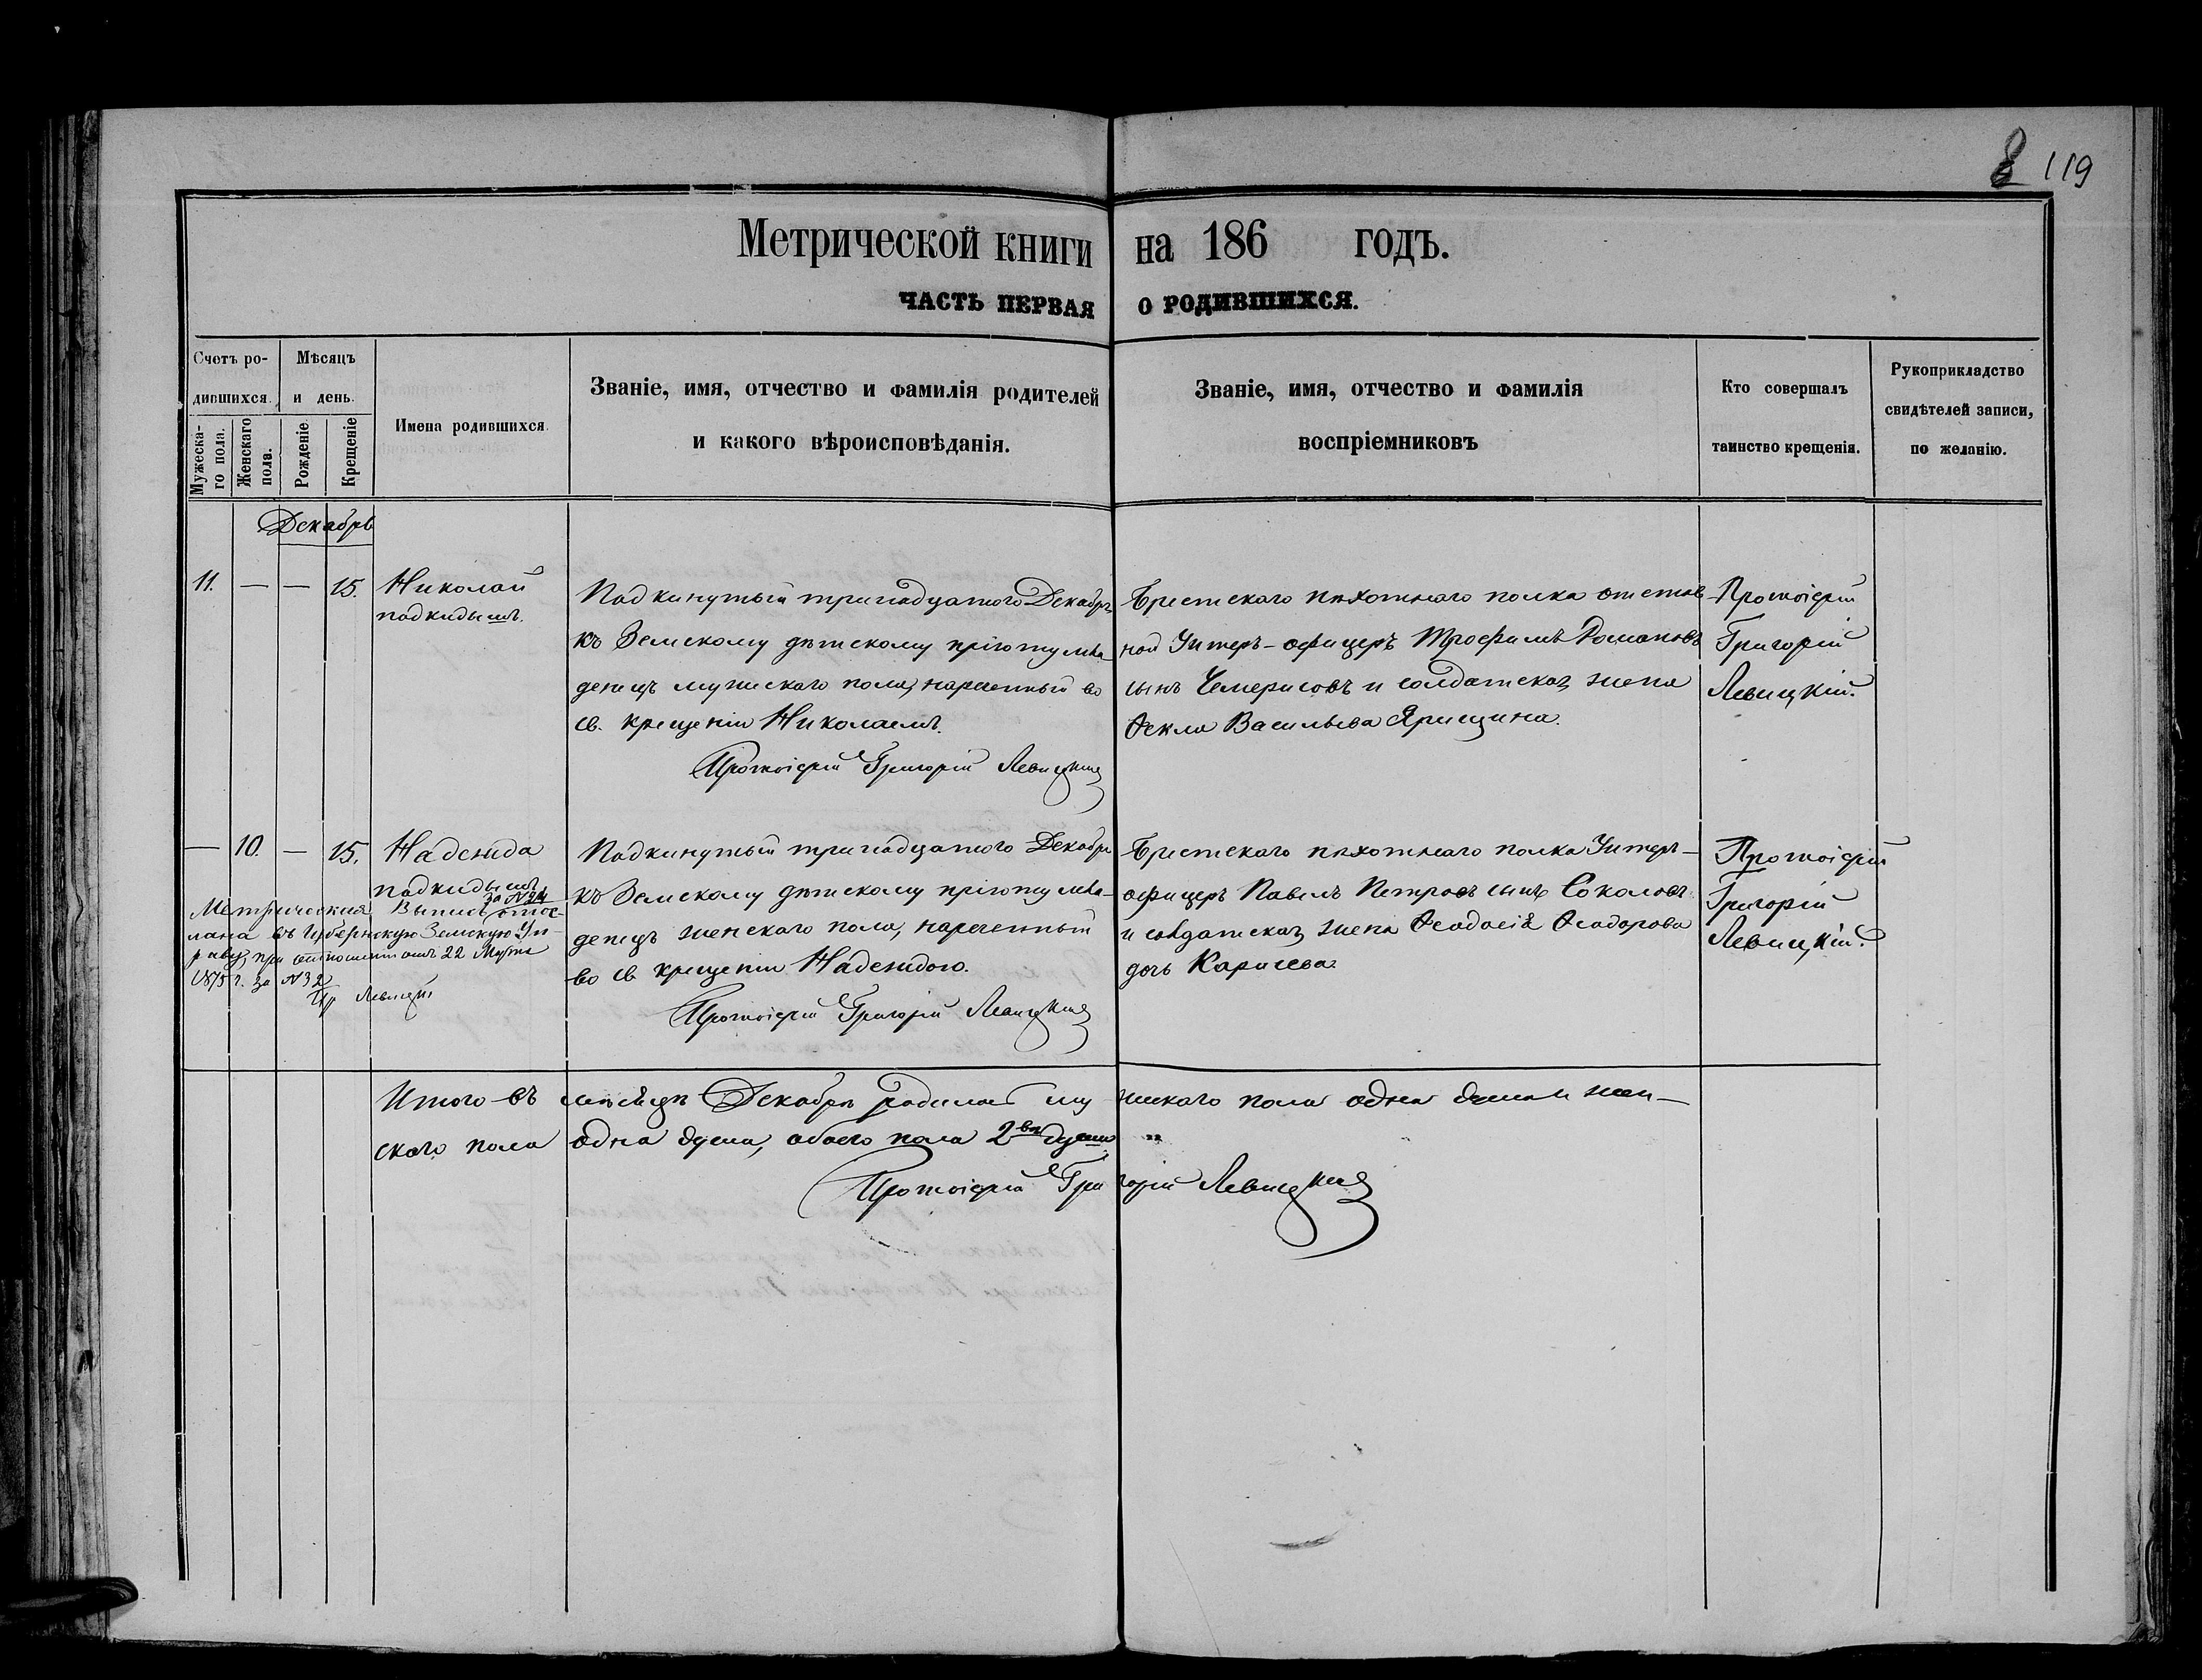 8 119
Метрической книги на 186 годъ.
ЧАСТЬ ПЕРВАЯ О РОДИВШИХСЯ.
Счетъ ро-
дившихся.
Мужеска-
го пола.
Женскаго
пола.
Мѣсяцъ
и день.
Рожденіе
Крещеніе
Имена родившихся.
Званіе, имя, отчество и фамилія родителей
и какого вѣроисповѣданія.
Званіе, имя, отчество и фамилія
воспріемниковъ
Кто совершалъ
таинство крещенія.
Рукоприкладство
свидѣтелей записи,
по желанію.
Декабрь
11. — — 15.
Николай
подкидышъ.
Подкинутый тринадцатого Декабря
къ Земскому дѣтскому пріюту мла-
денецъ мужескаго пола, нареченный во
св. крещеніи Николаемъ.
Протоіерей Григорій Левицкій
Брестскаго пѣхотнаго полка отстав
ной Унтеръ-офицеръ Трофимъ Романовъ
сынъ Чемерисовъ и солдатская жена
Ѳекла Васильева Ярищина.
Протоіерей
Григорій
Левицкій.
— 10. — 15.
Надежда
подкидышъ
Метрическая Выпись за №24 отос-
лана въ Губернскую Земскую Уп-
раву, при отношеніи отъ 22 Марта
1875 г. за №32
Пр Левицкій
Подкинутый тринадцатого Декабря
къ Земскому дѣтскому пріюту мла-
денецъ женскаго пола, нареченный
во св крещеніи Надеждою.
Протоіерей Григорій Левицкій
Брестскаго пѣхотнаго полка Унтеръ-
офицеръ Павелъ Петровъ сынъ Соколовъ
и солдатская жена Ѳеодосія Ѳеодорова
дочь Карачева.
Протоіерей
Григорій
Левицкій.
Итого въ мѣсяцѣ Декабрѣ родилось мужескаго пола одна душа и жен-
скаго пола одна душа, обоего пола 2вѣ души "
Протоіерей Григорій Левицкій